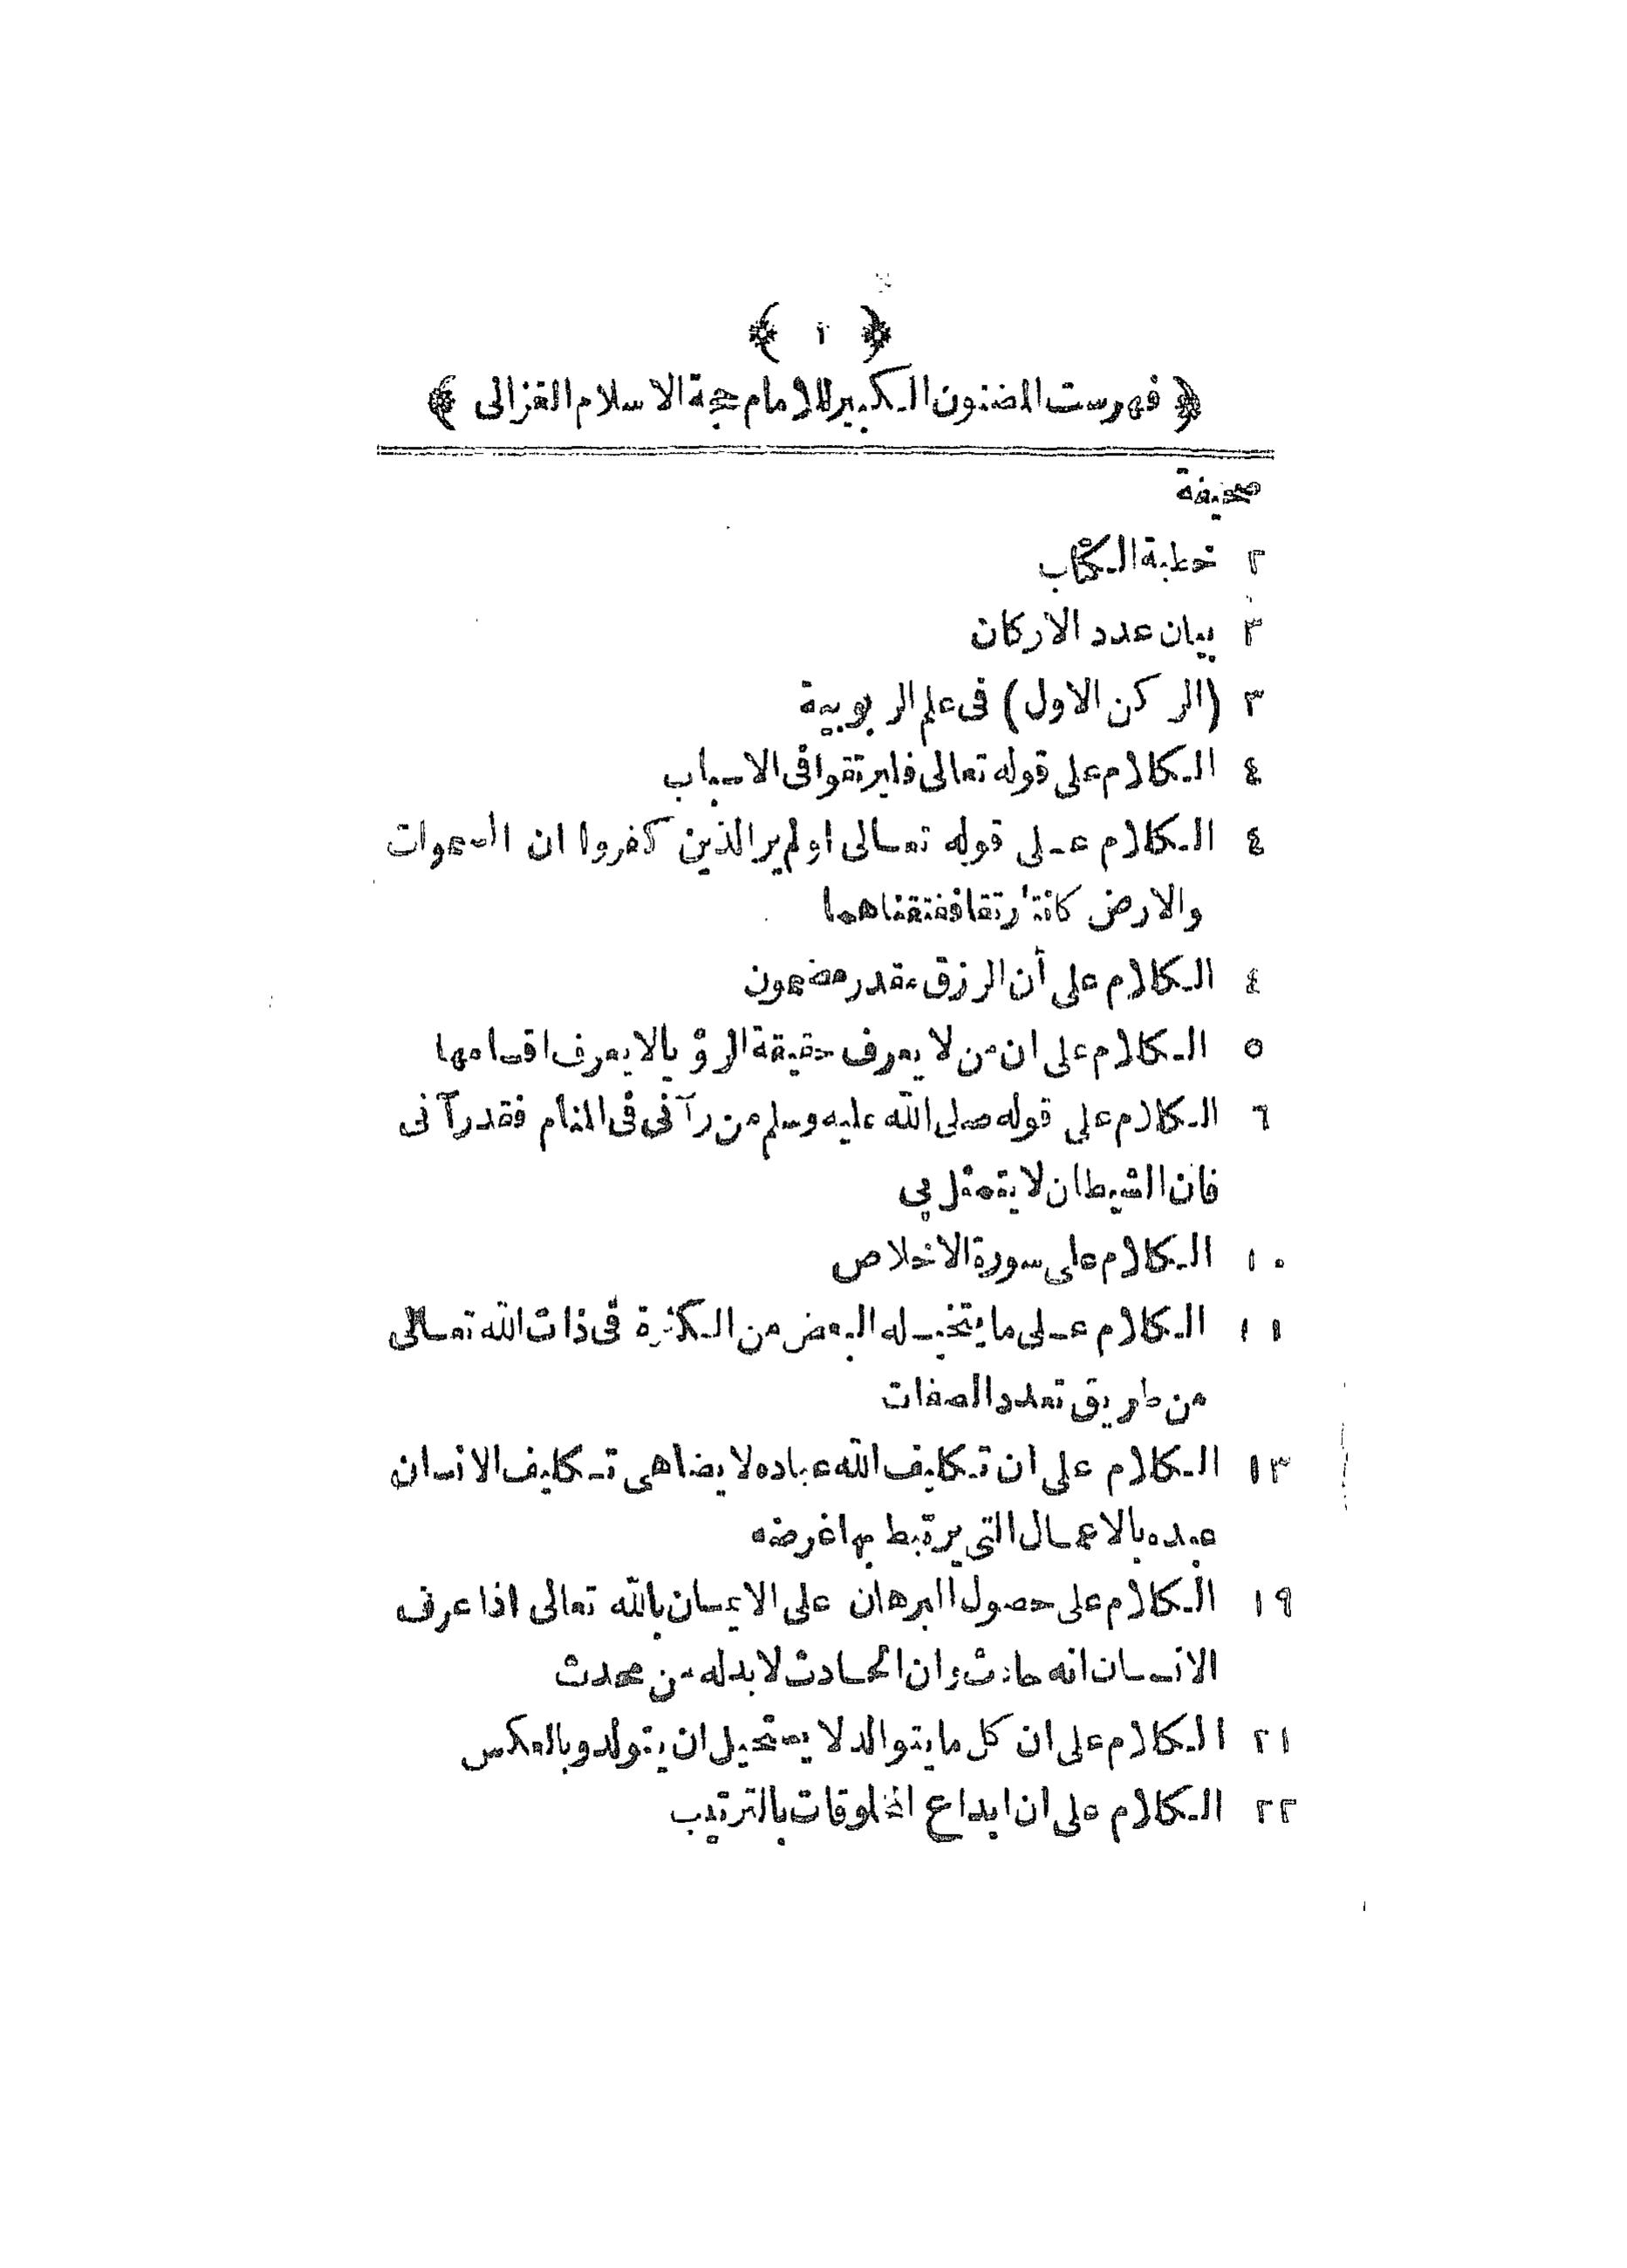 ﴿ ٢ ﴾
﴿ فهرست المضنون الكبير للامام حجة الاسلام الغزالى ﴾
صحيفة
٢ خطبة الكتاب
٣ بيان عدد الاركان
٣ (الركن الاول) فى علم الربوبية
٤ الكلام على قوله تعالى فليرتقوا فى الاسباب
٤ الكلام على قوله تعالى اولم ير الذين كفروا ان السموات
والارض كانتا رتقا ففتقناهما
٤ الكلام على أن الرزق مقدر مضمون
٥ الكلام على ان من لا يعرف حقيقة الرؤيا لا يعرف اقسامها
٦ الكلام على قوله صلى الله عليه وسلم من رآنى فى المنام فقد رآنى
فان الشيطان لا يتمثل بى
١٠ الكلام على سورة الاخلاص
١١ الكلام على ما يتخيله البعض من الكثرة فى ذات الله تعالى
من طريق تعدد الصفات
١٣ الكلام على ان تكليف الله عباده لا يضاهى تكليف الانسان
عبده بالاعمال التى يرتبط بها غرضه
١٩ الكلام على حصول البرهان على الايمان بالله تعالى اذا عرف
الانسان انه حادث وان الحادث لا بد له من محدث
٢١ الكلام على ان كل ما يتوالد لا يستحيل ان يتولد وبالعكس
٢٢ الكلام على ان ابداع المخلوقات بالترتيب